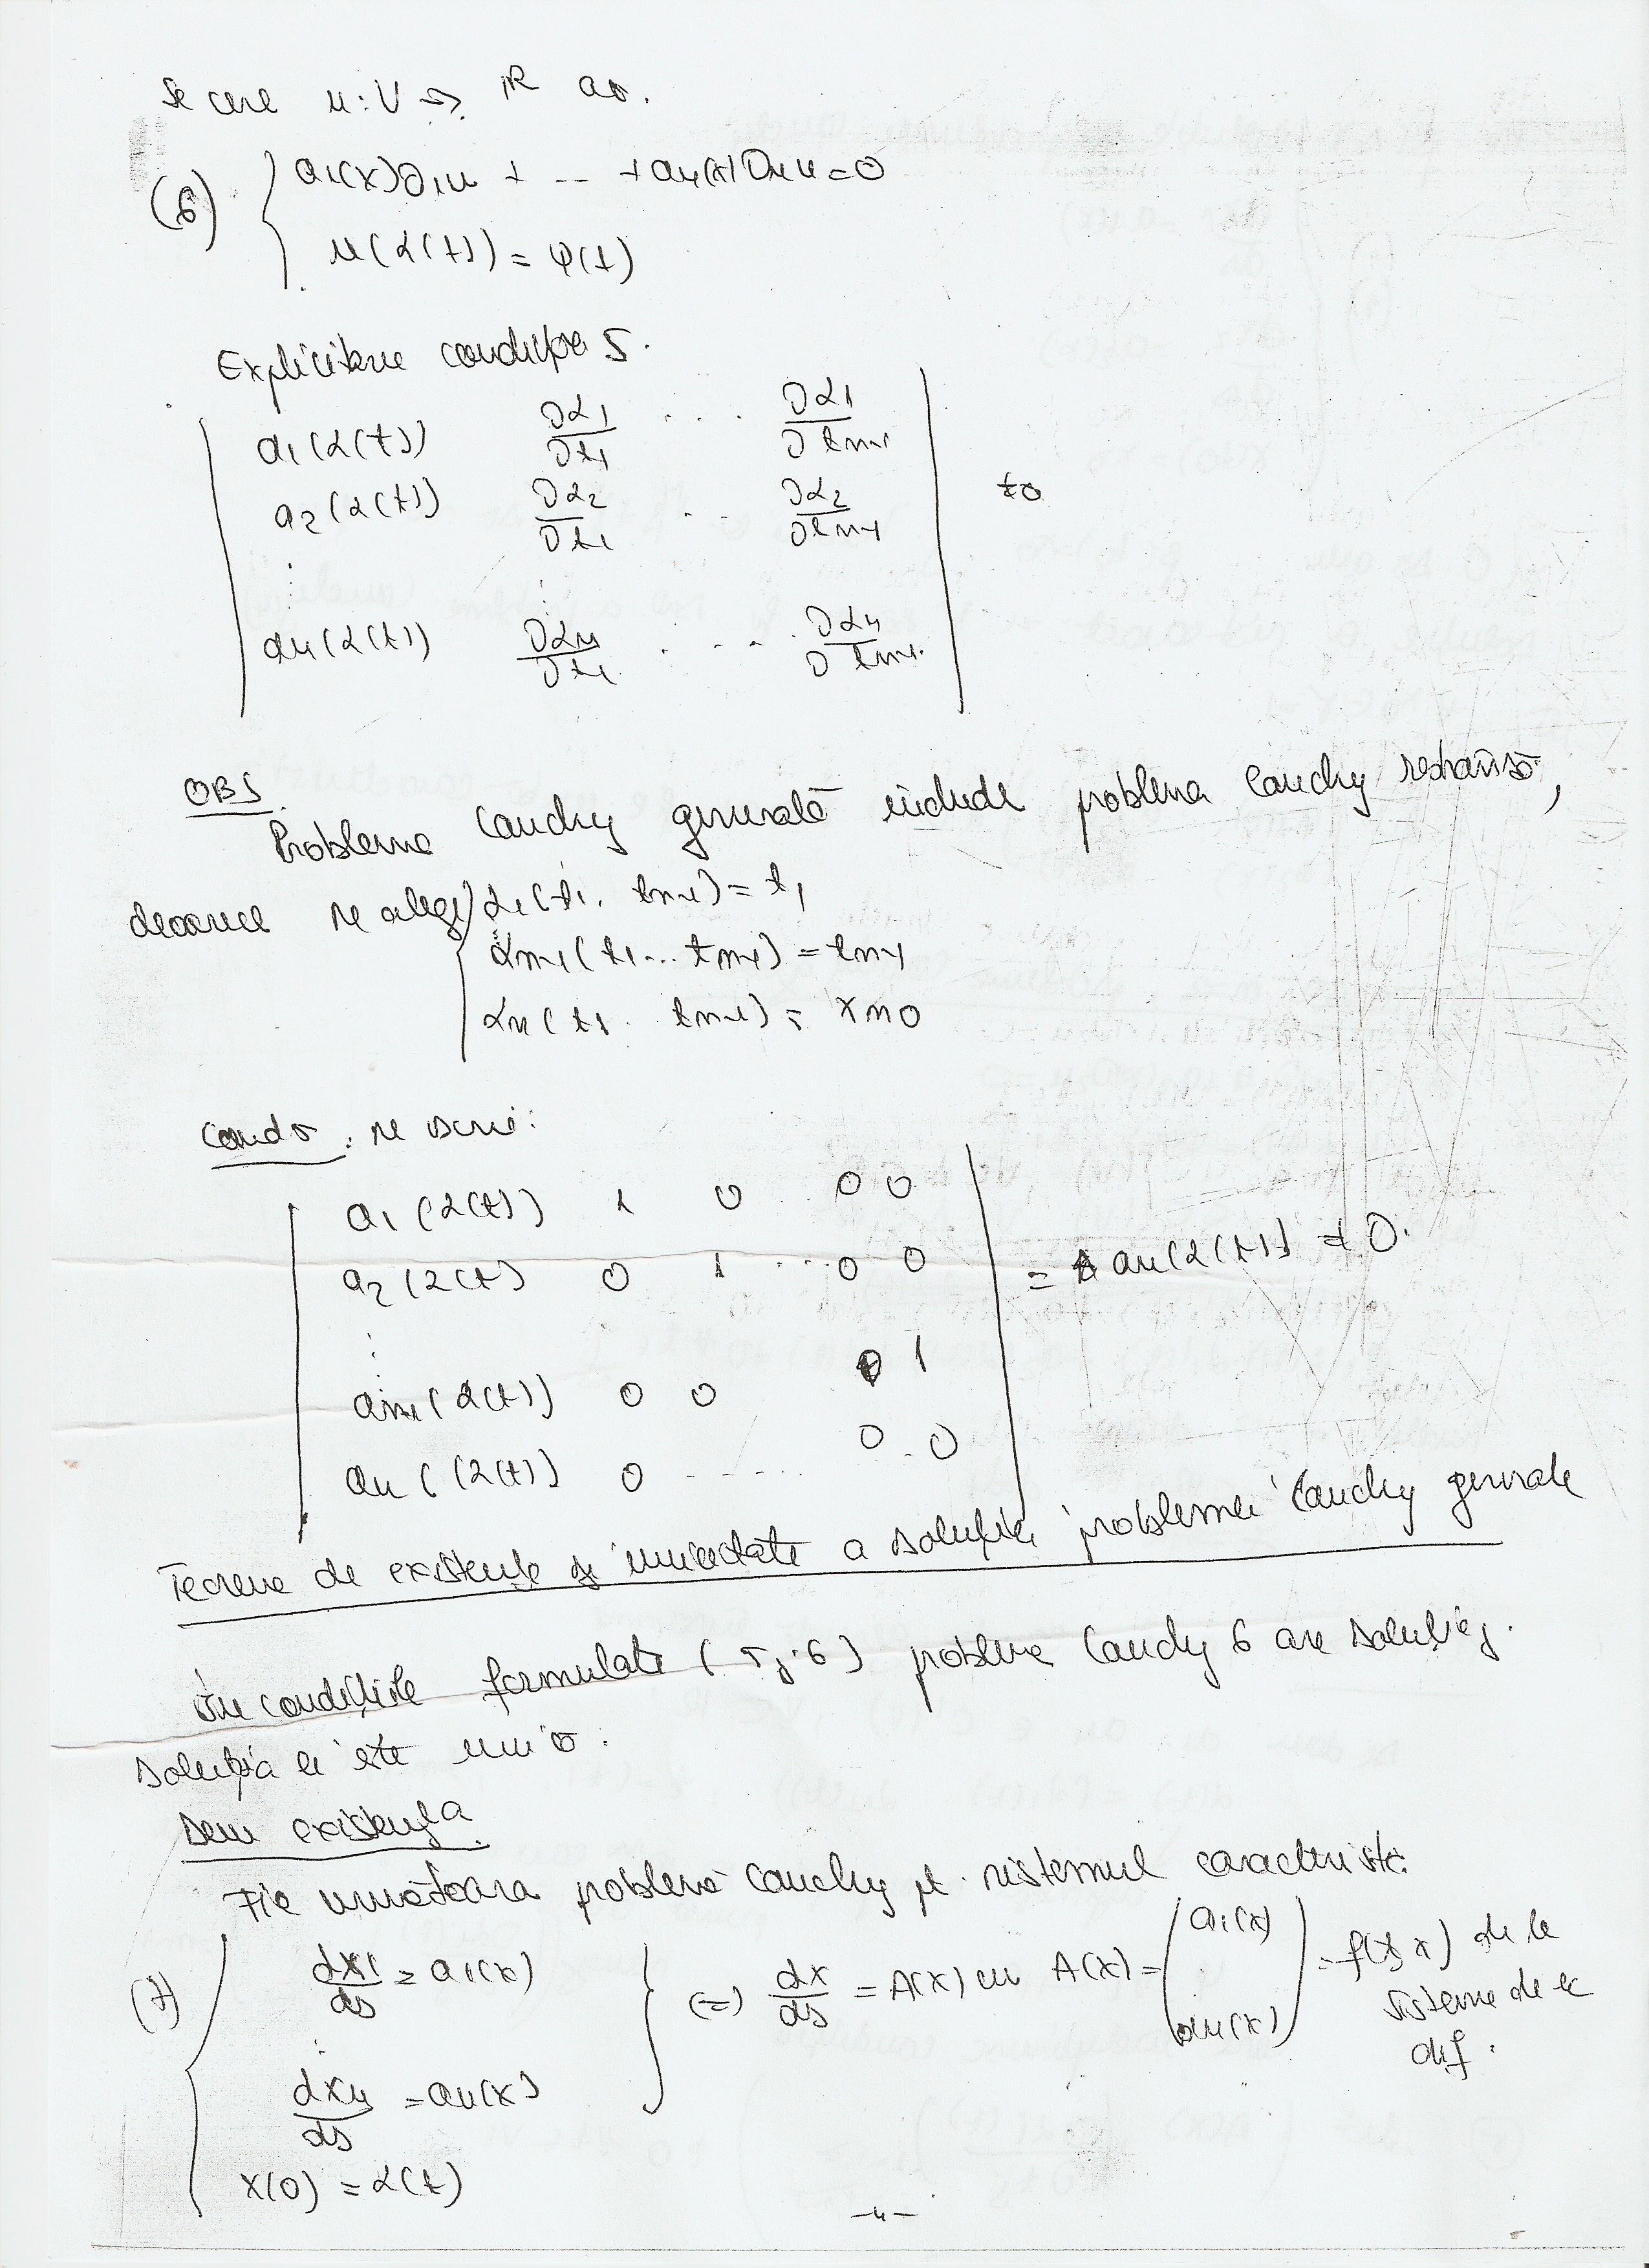 Se cere u: V → ℝ aî.
(6) { a₁(x)∂₁u + -- + aₙ(x)∂ₙu = 0
u(α(t)) = φ(t)
Explicităm condiția 5.
| a₁(α(t)) ∂α₁/∂t₁ ... ∂α₁/∂tₙ₋₁ |
| a₂(α(t)) ∂α₂/∂t₁ .. ∂α₂/∂tₙ₋₁ | ≠0
⋮ ⋮
| aₙ(α(t)) ∂αₙ/∂t₁ .... ∂αₙ/∂tₙ₋₁ |
OBS.
Problema Cauchy generală include problema Cauchy restrânsă,
deoarece se aleg { α₁(t₁. tₙ₋₁) = t₁
⋮
αₙ₋₁(t₁... tₙ₋₁) = tₙ₋₁
αₙ(t₁. tₙ₋₁) = xₙ0
Cond 5. se scrie:
| a₁(α(t)) 1 0 .. 0 0 |
| a₂(α(t) 0 1 ... 0 0 | = aₙ(α(t)) ≠ 0.
⋮
| aₙ₋₁(α(t)) 0 0 0 1 |
| aₙ((α(t)) 0 ------ 0 . 0 |
Teorema de existență și unicitate a soluției problemei Cauchy generale
În condițiile formulate (5; 6) problema Cauchy 6 are soluție și
soluția ei este unică.
Dem existența
Fie următoarea problemă Cauchy pt. sistemul caracteristic:
(7) { dx₁/ds = a₁(x) } (=) dx/ds = A(x) cu A(x) = (a₁(x) ⋮ aₙ(x)) = f(s, x) de la
sisteme de ec
dif.
⋮
dxₙ/ds = aₙ(x)
x(0) = α(t)
-4-